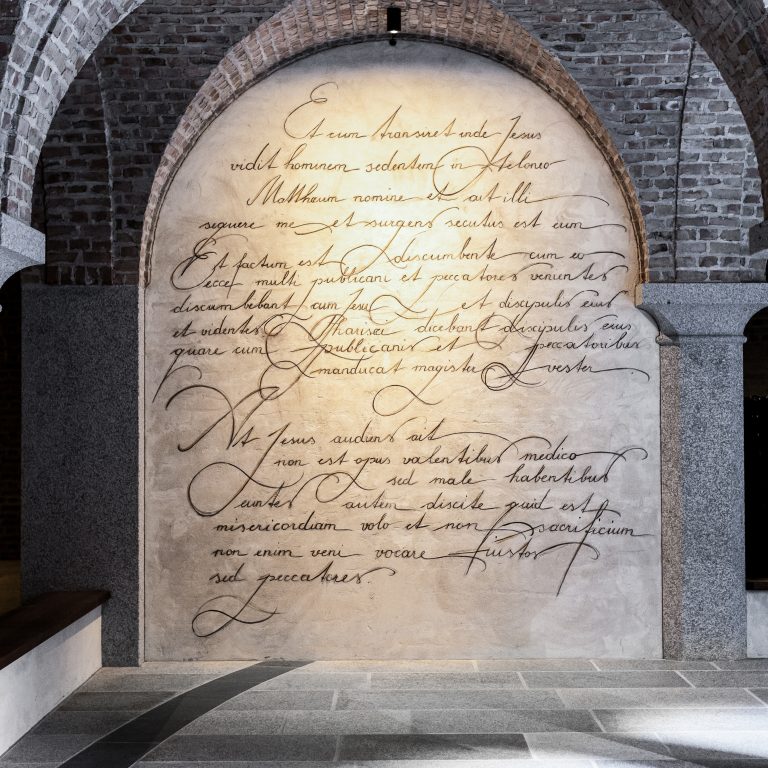 Et cum transiret inde Jesus
vidit hominem sedentem in teloneo
Matthæum nomine et ait illi
sequere me et surgens secutus est eum
Et factum est discumbente eum eo
ecce multi publicani et peccatores venientes
discumbebant cum Jesu et discipulis eius
et videntes Pharisei dicebant discipulis eius
quare cum publicanis et peccatoribus
manducat magister vester
At Jesus audiens ait
non est opus valentibus medico
sed male habentibus
euntes autem discite quid est
misericordiam volo et non sacrificium
non enim veni vocare iustos
sed peccatores.